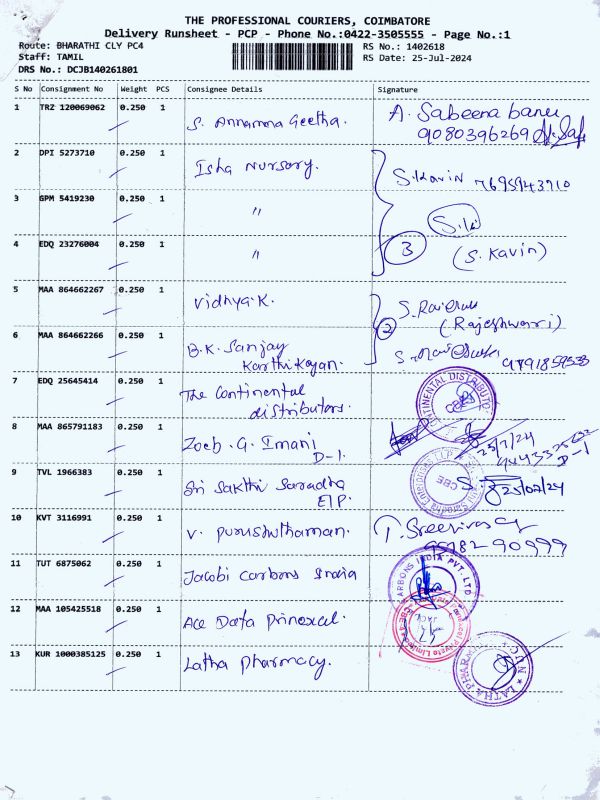 THE PROFESSIONAL COURIERS, COIMBATORE
Delivery Runsheet - PCP - Phone No.:0422-3505555 - Page No.:1
Route: BHARATHI CLY PC4
RS No.: 1402618
Staff: TAMIL
RS Date: 25-Jul-2024
DRS No.: DCJB140261801
S No Consignment No Weight PCS Consignee Details Signature
1 TRZ 120069062 0.250 1 S. Annamma Geetha. A. Sabeena banu
9080396269
2 DPI 5273710 0.250 1 Isha Nursory. S.Kavin 7695943910
3 GPM 5419230 0.250 1 "
4 EDQ 23276004 0.250 1 " 3 (S. Kavin)
5 MAA 864662267 0.250 1 Vidhya.K.
2 (Rajeshwari)
6 MAA 864662266 0.250 1 B.K. Sanjay
Karthikayan.
7 EDQ 25645414 0.250 1 The Continental
distributors.
CONTINENTAL DISTRIBUTO
CBE
8 MAA 865791183 0.250 1 Zoeb .G. Imani
D-1.
25/7/24
D-1
9 TVL 1966383 0.250 1 Sri Sakthi Saradha
E/P.
CBE
25/07/24
10 KVT 3116991 0.250 1 V. purushothaman.
90999
11 TUT 6875062 0.250 1 Jacobi Carbons India
CARBONS INDIA PVT LTD
12 MAA 105425518 0.250 1 Ace Data
Private Limited
13 KUR 1000385125 0.250 1 Latha pharmacy.
LATHA PHARMACY